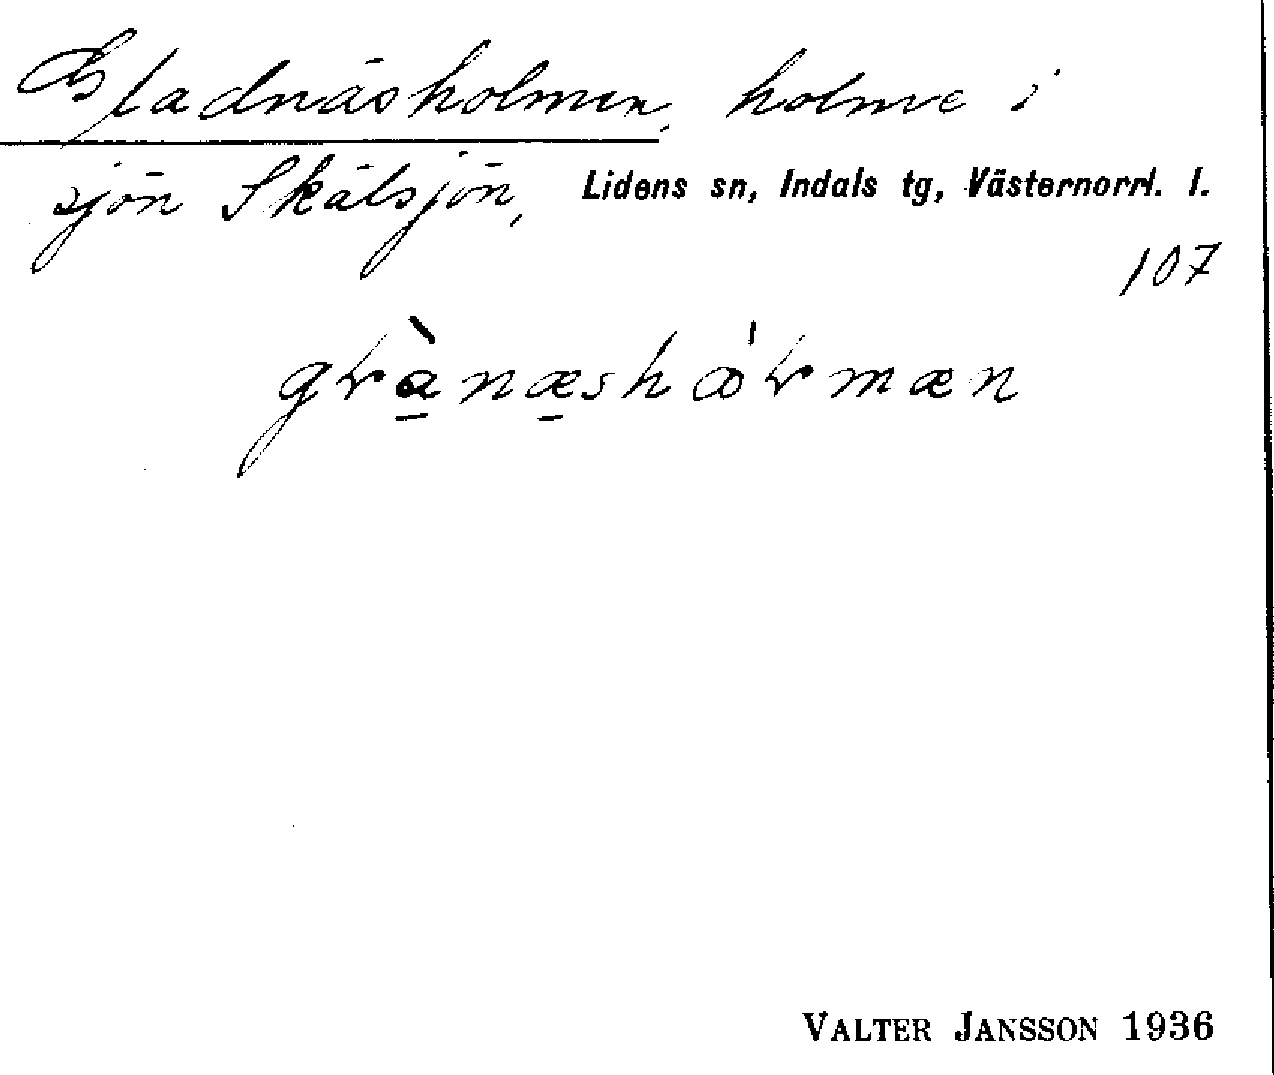 Gladnäsholmen, holme i
sjön Skälsjön, Lidens sn, Indals tg, Västernorrl. l.
107
grànæshórmæn
VALTER JANSSON 1936